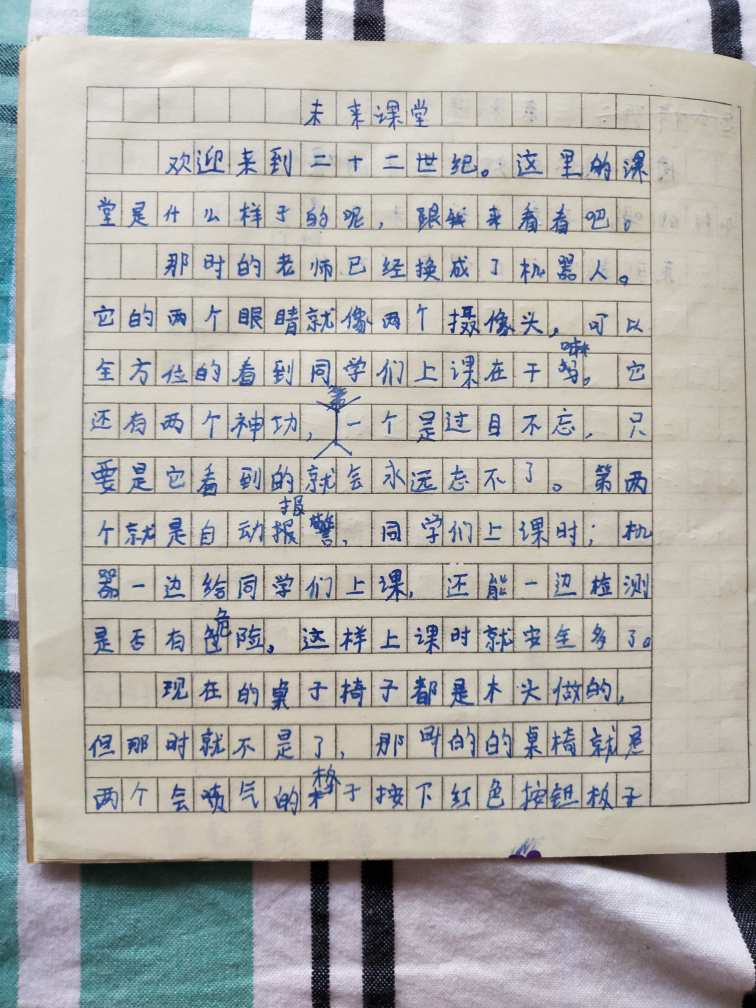 未来课堂
欢迎来到二十二世纪。这里的课
堂是什么样子的呢，跟我来看看吧。
那时的老师已经换成了机器人。
它的两个眼睛就像两个摄像头，可以
全方位的看到同学们上课在干嘛。它
还有两个神功，第一个是过目不忘，只
要是它看到的就会永远忘不了。第两
个就是自动报警，同学们上课时；机
器一边给同学们上课，还能一边检测
是否有危险。这样上课时就安全多了。
现在的桌子椅子都是木头做的，
但那时就不是了，那时的的桌椅就是
两个会喷气的格子按下红色按钮板子